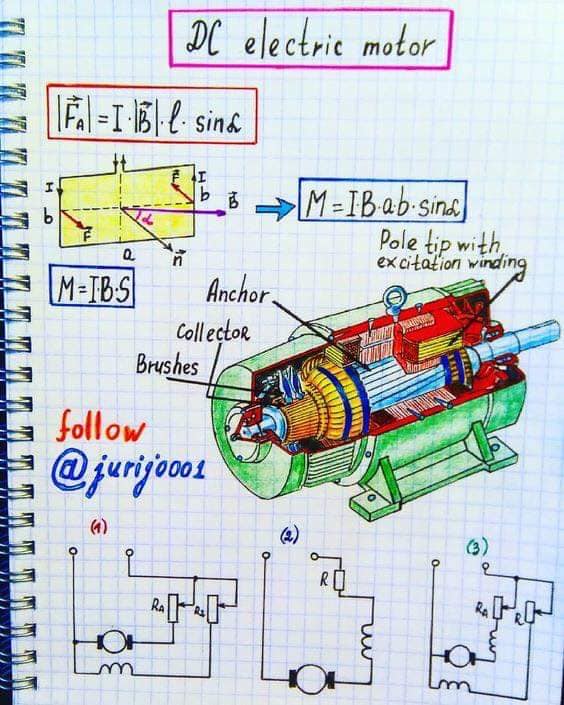 DC electric motor
|F⃗A| = I·|B⃗|·l· sinα
I
F⃗
I
b
b
α
B⃗
F⃗
a
n⃗
M=I·B·a·b·sinα
M=I·B·S
Pole tip with
excitation winding
Anchor
Collector
Brushes
follow
@jurijo001
(1)
(2)
(3)
RA
R
RA
R